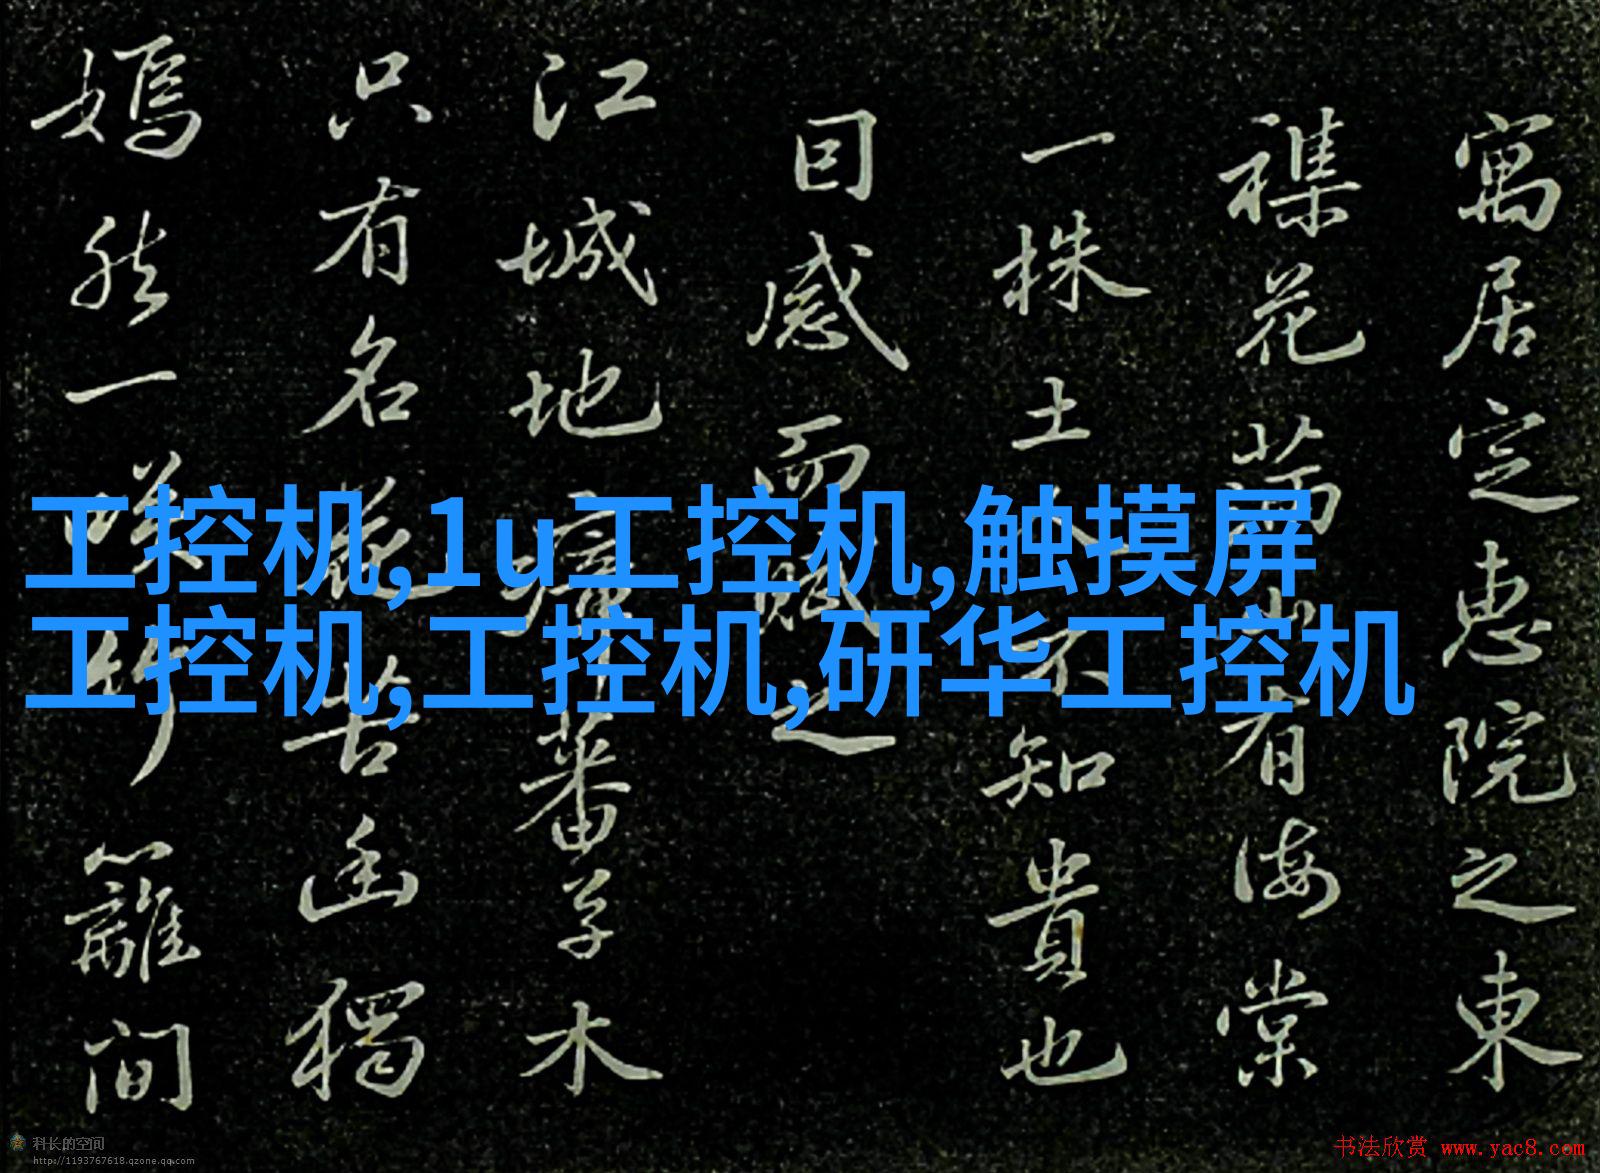 寓居定惠院之東
襍花滿山有海棠
一株土人不知貴也
因感而賦之
江城地瘴蕃草木
只有名花苦幽獨
嫣然一咲竹籬間
工控机,1u工控机,触摸屏
工控机,工控机,研华工控机
科长的空间
http://1193767618.qzone.qq.com
书法欣赏 www.yac8.com